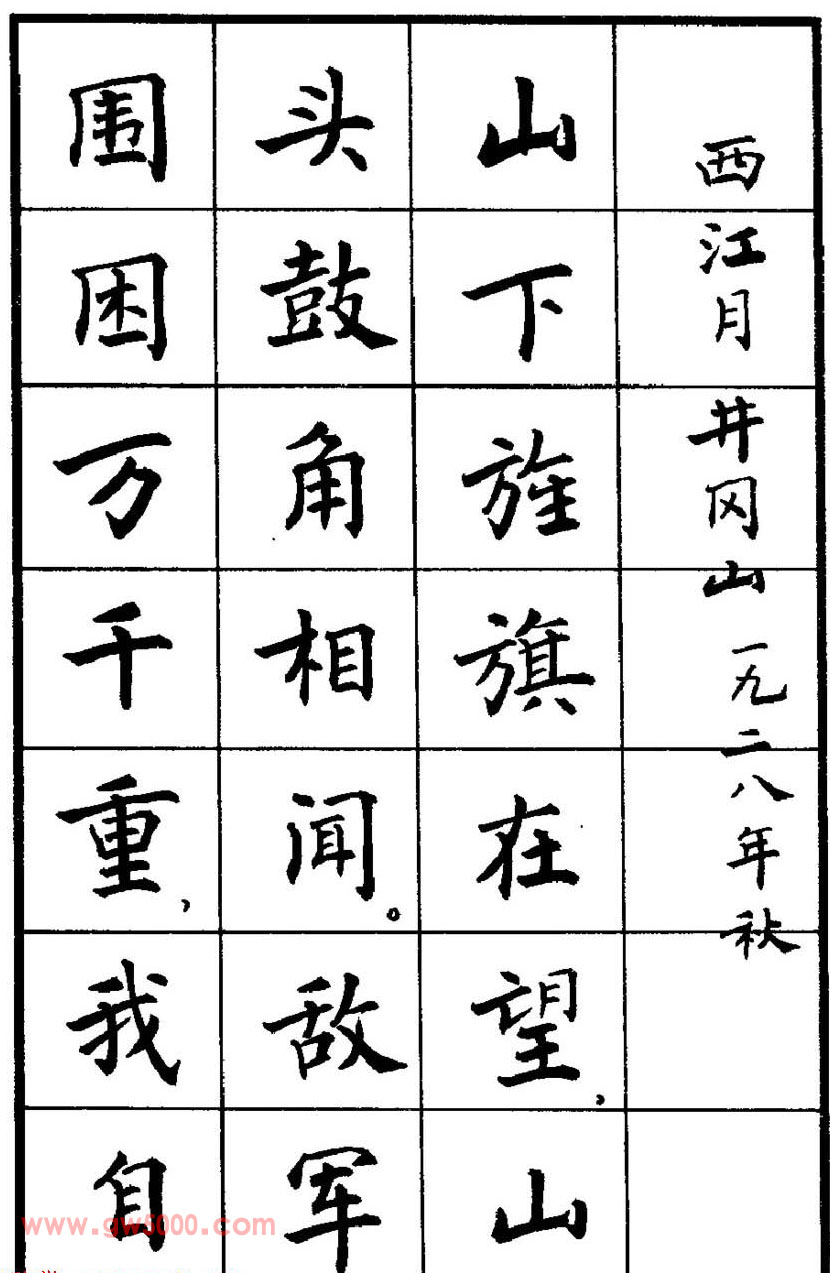 西江月 井冈山 一九二八年秋
山下旌旗在望，山
头鼓角相闻。敌军
围困万千重，我自
www.gw5000.com